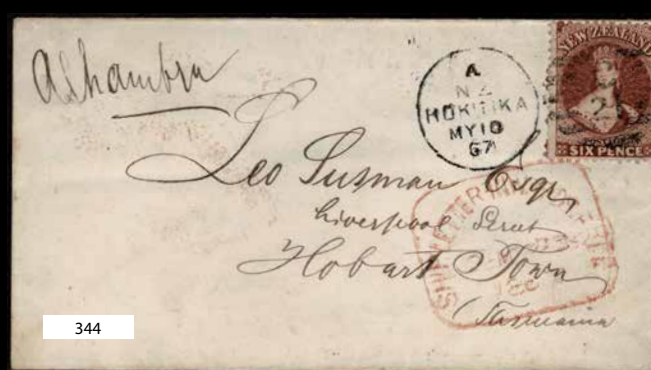 Alhambra
A
N Z
HOKITIKA
MY10
67
NEW ZEALAND
SIX PENCE
Leo Susman Esqr
Liverpool Street
Hobart Town
Tasmania
SHIP LETTER FREE
344